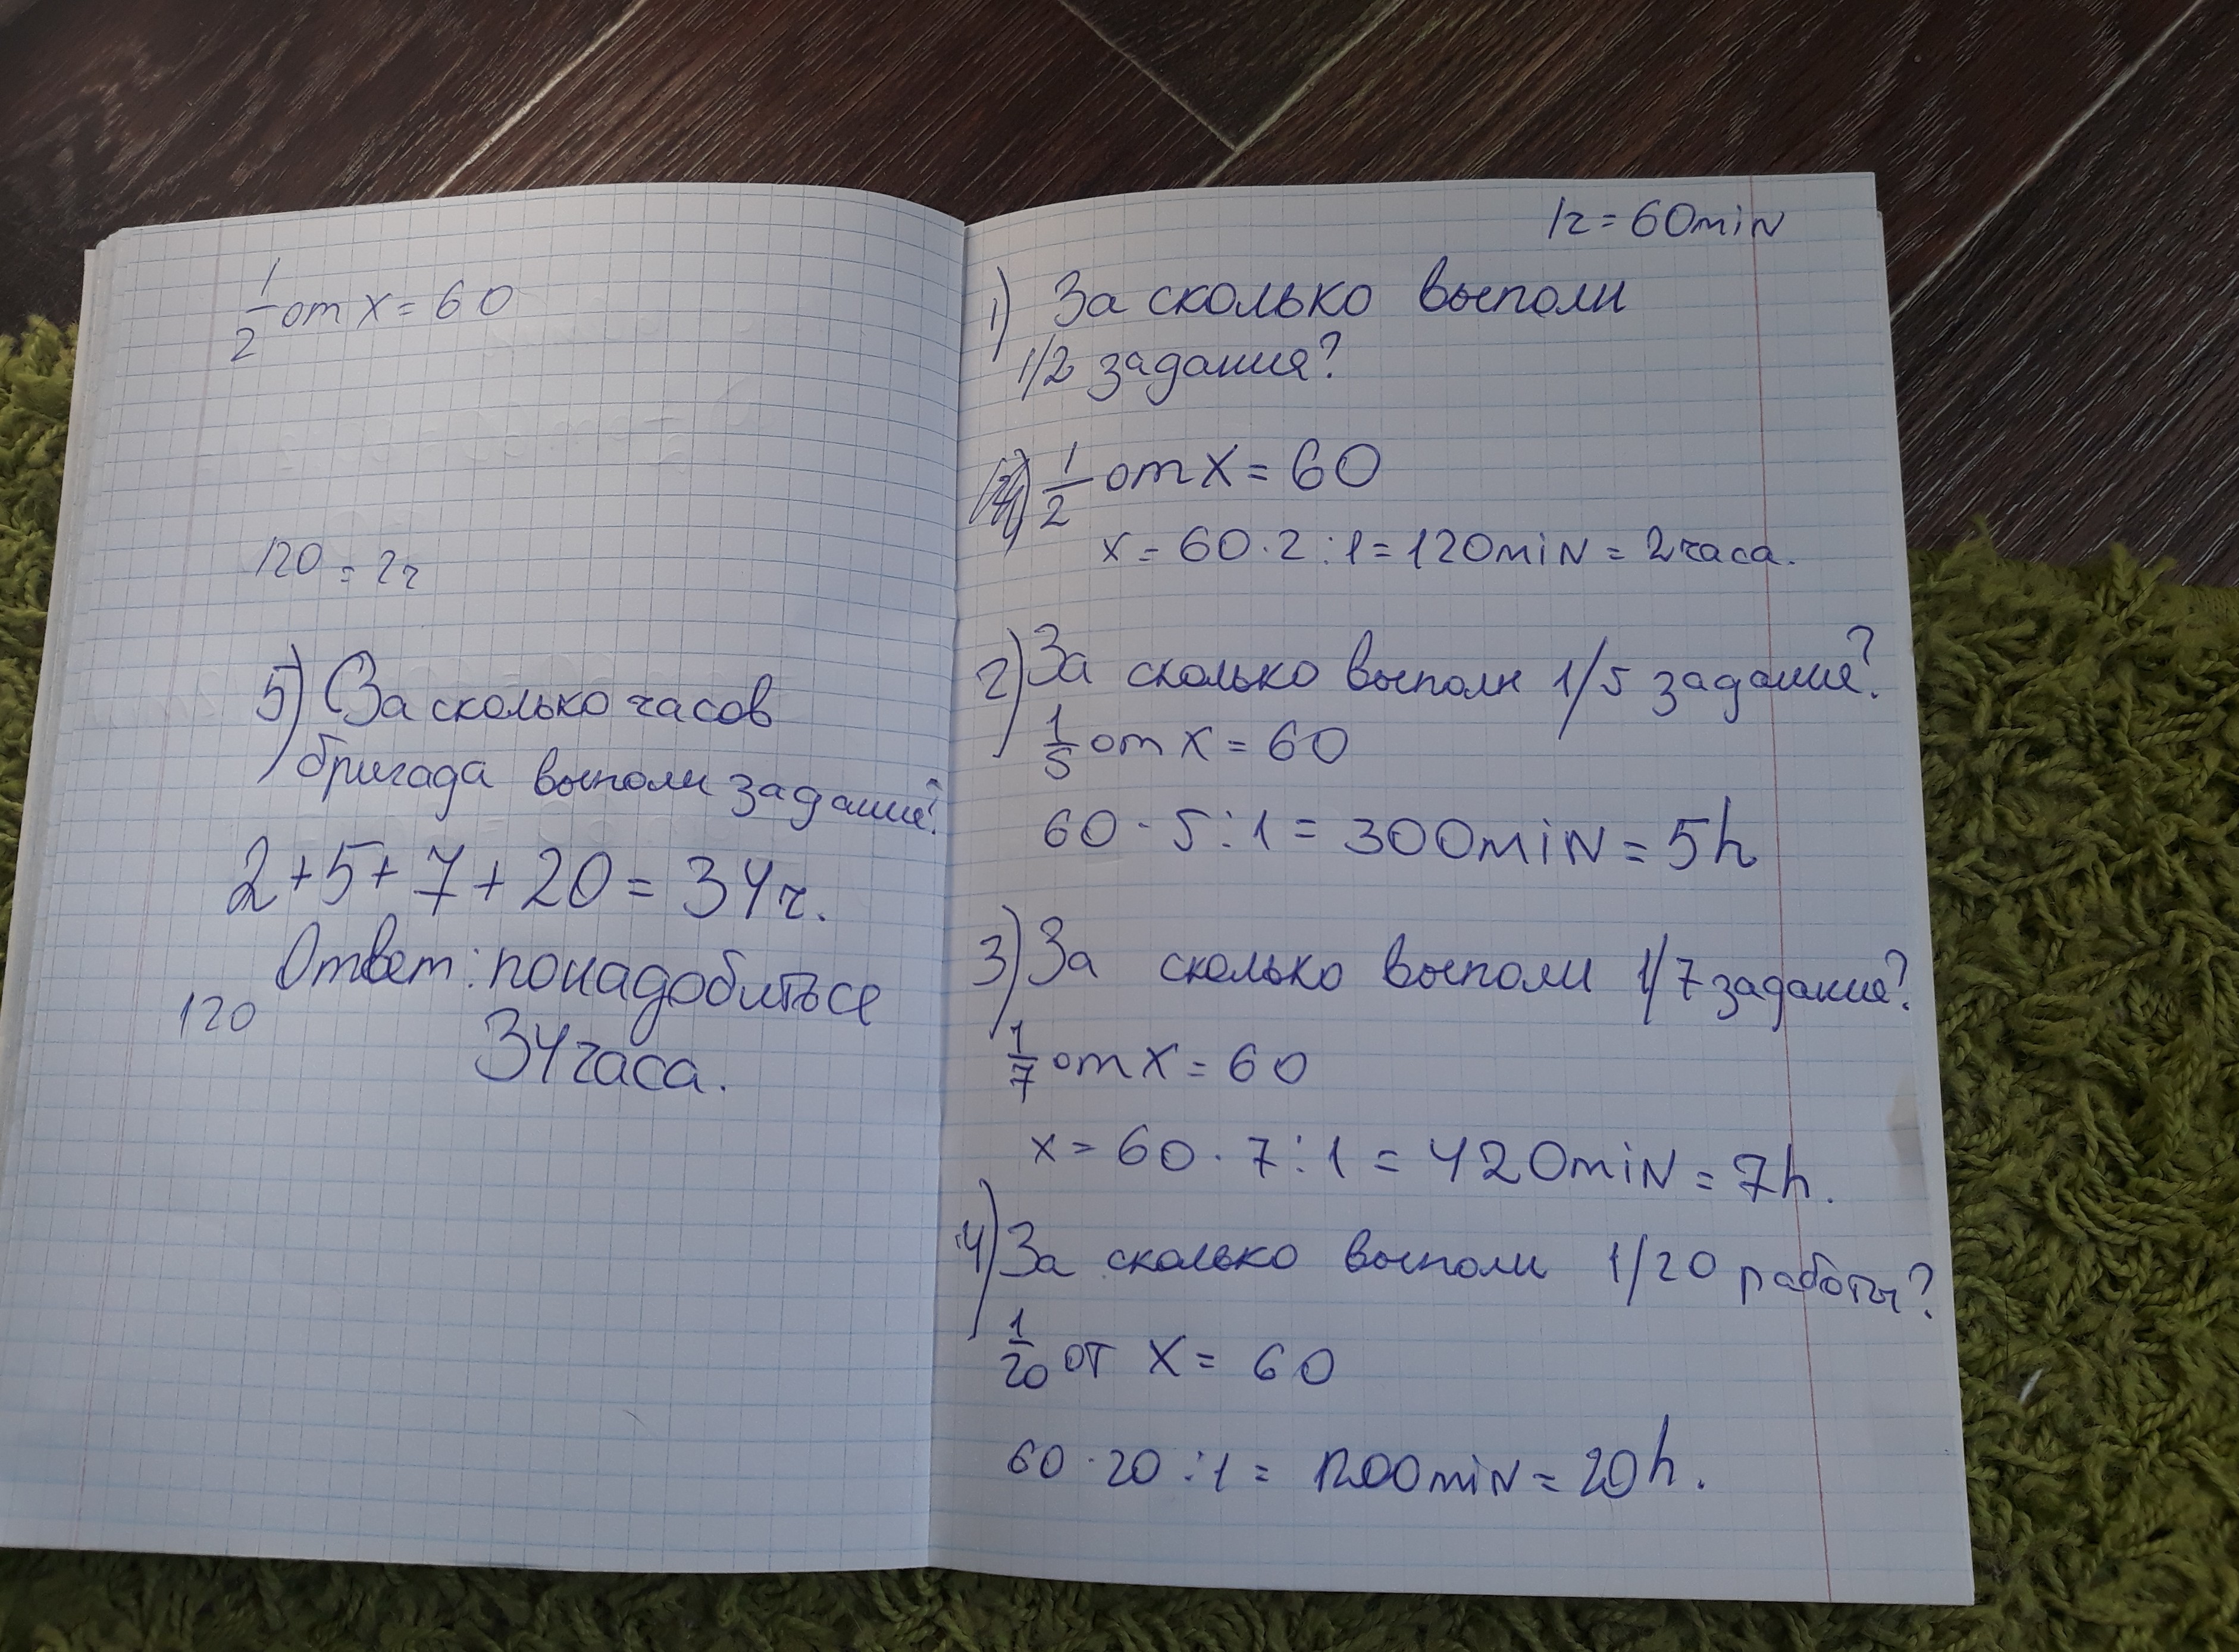 1/2 от x = 60
120 = 2ч
5) За сколько часов
бригада выполн задание?
2+5+7+20 = 34ч.
Ответ: понадобиться
120
34часа.
1ч = 60min
1) За сколько выполн
1/2 задания?
1/2 от x = 60
x = 60·2:1 = 120min = 2часа.
2) За сколько выполн 1/5 задание?
1/5 от x = 60
60·5:1 = 300min = 5h
3) За сколько выполн 1/7 задание?
1/7 от x = 60
x = 60·7:1 = 420min = 7h.
4) За сколько выполн 1/20 работы?
1/20 от x = 60
60·20:1 = 1200min = 20h.